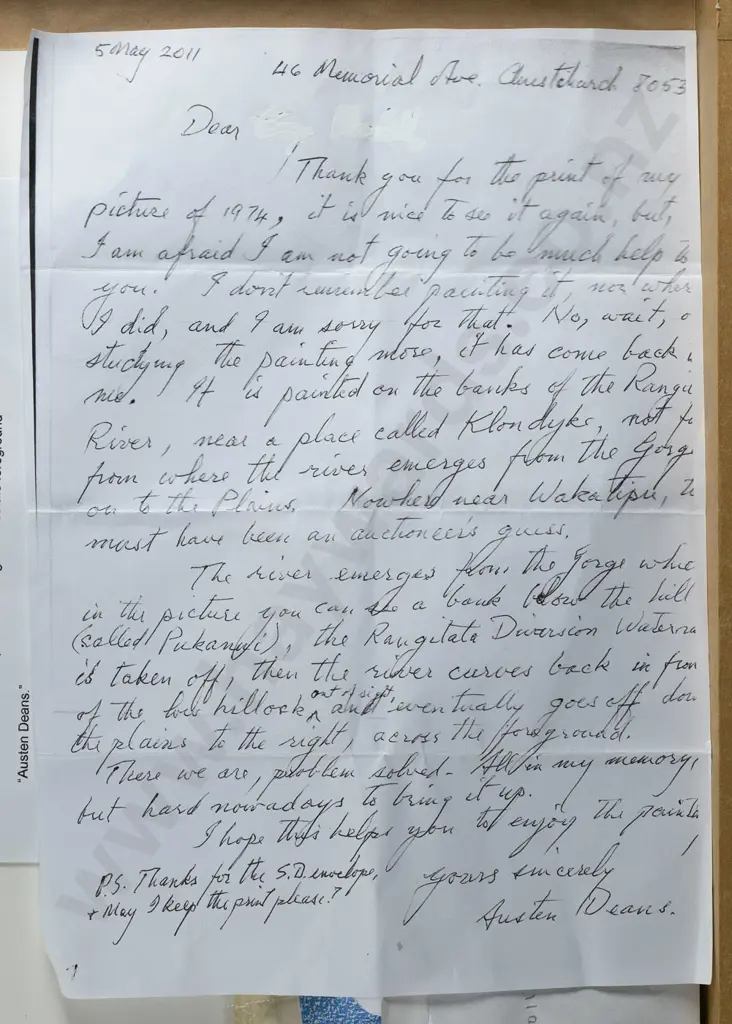 5 May 2011
46 Memorial Ave. Christchurch 8053
Dear
Thank you for the print of my
picture of 1974, it is nice to see it again, but,
I am afraid I am not going to be much help to
you. I don't remember painting it, nor wher
I did, and I am sorry for that. No, wait, o
studying the painting more, it has come back
me. It is painted on the banks of the Rangi
River, near a place called Klondyke, not f
from where the river emerges from the Gorge
on to the Plains. Nowhere near Wakatipu, t
must have been an auctioneer's guess.
The river emerges from the Gorge whe
in the picture you can see a bank below the hill
(called Pukanui), the Rangitata Diversion Waterra
is taken off, then the river curves back in fron
of the low hillock out of sight and eventually goes off dow
the plains to the right, across the foreground.
There we are, problem solved - All in my memory,
but hard nowadays to bring it up.
I hope this helps you to enjoy the paintin
yours sincerely
Austen Deans.
P.S. Thanks for the S.D. envelope,
+ May I keep the print please?
"Austen Deans."